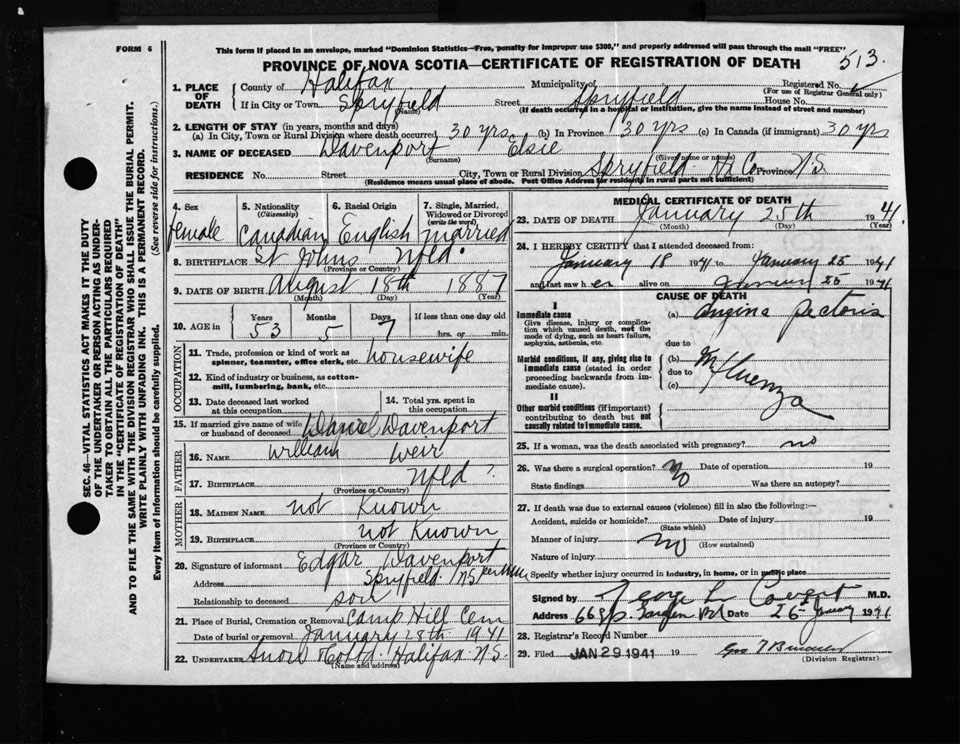 FORM 6
This form if placed in an envelope, marked "Dominion Statistics—Free, penalty for improper use $300," and properly addressed will pass through the mail "FREE"
PROVINCE OF NOVA SCOTIA—CERTIFICATE OF REGISTRATION OF DEATH
513.
1. PLACE OF DEATH
County of Halifax
Municipality of Spryfield
Registered No.
(For use of Registrar General only)
If in City or Town Spryfield
(Name)
Street
House No.
(If death occurred in a hospital or institution, give the name instead of street and number)
2. LENGTH OF STAY (in years, months and days)
(a) In City, Town or Rural Division where death occurred 30 yrs. (b) In Province 30 yrs (c) In Canada (if immigrant) 30 yrs
3. NAME OF DECEASED Davenport Elsie
(Surname) (Given name or names)
RESIDENCE No. Street City, Town or Rural Division Spryfield Hx Co Province N.S
(Residence means usual place of abode. Post Office Address for residents in rural parts not sufficient)
4. Sex
female
5. Nationality
(Citizenship)
Canadian
6. Racial Origin
English
7. Single, Married, Widowed or Divorced
(write the word)
married
8. BIRTHPLACE St Johns Nfld.
(Province or Country)
9. DATE OF BIRTH August 18th 1887
(Month) (Day) (Year)
10. AGE in
Years Months Days If less than one day old
53 5 7 hrs. or min.
OCCUPATION
11. Trade, profession or kind of work as spinner, teamster, office clerk, etc. housewife
12. Kind of industry or business, as cotton-mill, lumbering, bank, etc.
13. Date deceased last worked at this occupation
14. Total yrs. spent in this occupation
15. If married give name of wife or husband of deceased Daniel Davenport
FATHER
16. NAME William Weir
17. BIRTHPLACE Nfld ?
(Province or Country)
MOTHER
18. MAIDEN NAME not Known
19. BIRTHPLACE not Known
(Province or Country)
20. Signature of informant Edgar Davenport
Address Spryfield N.S
Relationship to deceased son
21. Place of Burial, Cremation or Removal Camp Hill Cem
Date of burial or removal January 28th 1941
22. UNDERTAKER Snow Halifax N.S.
(Name and address)
MEDICAL CERTIFICATE OF DEATH
23. DATE OF DEATH January 25th 1941.
(Month) (Day) (Year)
24. I HEREBY CERTIFY that I attended deceased from:
January 18 1941 to January 25 1941
and last saw her alive on January 25 1941
CAUSE OF DEATH
I
Immediate cause
Give disease, injury or complication which caused death, not the mode of dying, such as heart failure, asphyxia, asthenia, etc.
(a) Angina Pectoris
due to
Morbid conditions, if any, giving rise to immediate cause (stated in order proceeding backwards from immediate cause).
(b) Influenza
due to
(c)
II
Other morbid conditions (if important) contributing to death but not causally related to immediate cause.
25. If a woman, was the death associated with pregnancy? no
26. Was there a surgical operation? No Date of operation 19
State findings Was there an autopsy?
27. If death was due to external causes (violence) fill in also the following:—
Accident, suicide or homicide? Date of injury 19
(State which)
Manner of injury no
(How sustained)
Nature of injury
Specify whether injury occurred in industry, in home, or in public place
Signed by George M.D.
Address Date 26th January 1941
28. Registrar's Record Number
29. Filed JAN 29 1941 19
(Division Registrar)
SEC. 46—VITAL STATISTICS ACT MAKES IT THE DUTY OF THE UNDERTAKER OR PERSON ACTING AS UNDERTAKER TO OBTAIN ALL THE PARTICULARS REQUIRED IN THE "CERTIFICATE OF REGISTRATION OF DEATH" AND TO FILE THE SAME WITH THE DIVISION REGISTRAR WHO SHALL ISSUE THE BURIAL PERMIT.
WRITE PLAINLY WITH UNFADING INK. THIS IS A PERMANENT RECORD.
Every item of Information should be carefully supplied. (See reverse side for instructions.)